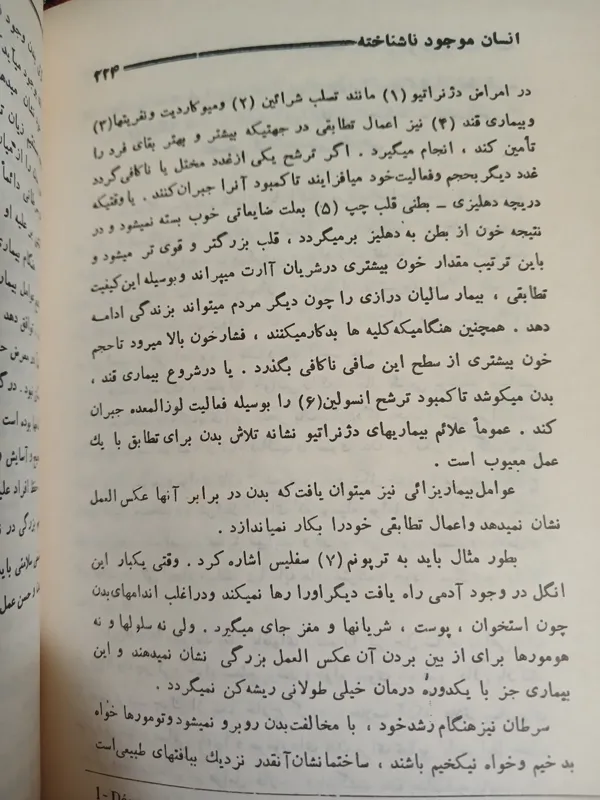 انسان موجود ناشناخته
۲۲۴
در امراض دژنراتیو (۱) مانند تصلب شرائین (۲) ومیوکاردیت ونفریتها(۳)
وبیماری قند (۴) نیز اعمال تطابقی در جهتیکه بیشتر و بهتر بقای فرد را
تأمین کند ، انجام میگیرد . اگر ترشح یکی ازغدد مختل یا ناکافی گردد
غدد دیگر بحجم وفعالیت‌خود میافزایند تاکمبود آنرا جبران‌کنند . یاوقتیکه
دریچه دهلیزی ـ بطنی قلب چپ (۵) بعلت ضایعاتی خوب بسته نمیشود و در
نتیجه خون از بطن به دهلیز برمیگردد ، قلب بزرگتر و قوی تر میشود و
باین ترتیب مقدار خون بیشتری درشریان آآرت میپراند وبوسیله این‌کیفیت
تطابقی ، بیمار سالیان درازی را چون دیگر مردم میتواند بزندگی ادامه
دهد . همچنین هنگامیکه کلیه ها بدکارمیکنند ، فشارخون بالا میرود تاحجم
خون بیشتری از سطح این صافی ناکافی بگذرد . یا درشروع بیماری قند ،
بدن میکوشد تاکمبود ترشح انسولین(۶) را بوسیله فعالیت لوزالمعده جبران
کند . عموماً علائم بیماریهای دژنراتیو نشانه تلاش بدن برای تطابق با یك
عمل معیوب است .
عوامل‌بیماریزائی نیز میتوان یافت‌که بدن در برابر آنها عکس العمل
نشان نمیدهد واعمال تطابقی خودرا بکار نمیاندازد .
بطور مثال باید به ترپونم (۷) سفلیس اشاره کرد . وقتی یکبار این
انگل در وجود آدمی راه یافت دیگراورا رها نمیکند ودراغلب اندامهای‌بدن
چون استخوان ، پوست ، شریانها و مغز جای میگیرد . ولی نه سلولها و نه
هومورها برای از بین بردن آن عکس العمل بزرگی نشان نمیدهند و این
بیماری جز با یکدورهٔ درمان خیلی طولانی ریشه‌کن نمیگردد .
سرطان نیزهنگام رشدخود ، با مخالفت‌بدن روبرو نمیشود وتومورها خواه
بدخیم وخواه نیکخیم باشند ، ساختمانشان‌آنقدر نزدیك ببافتهای طبیعی‌است